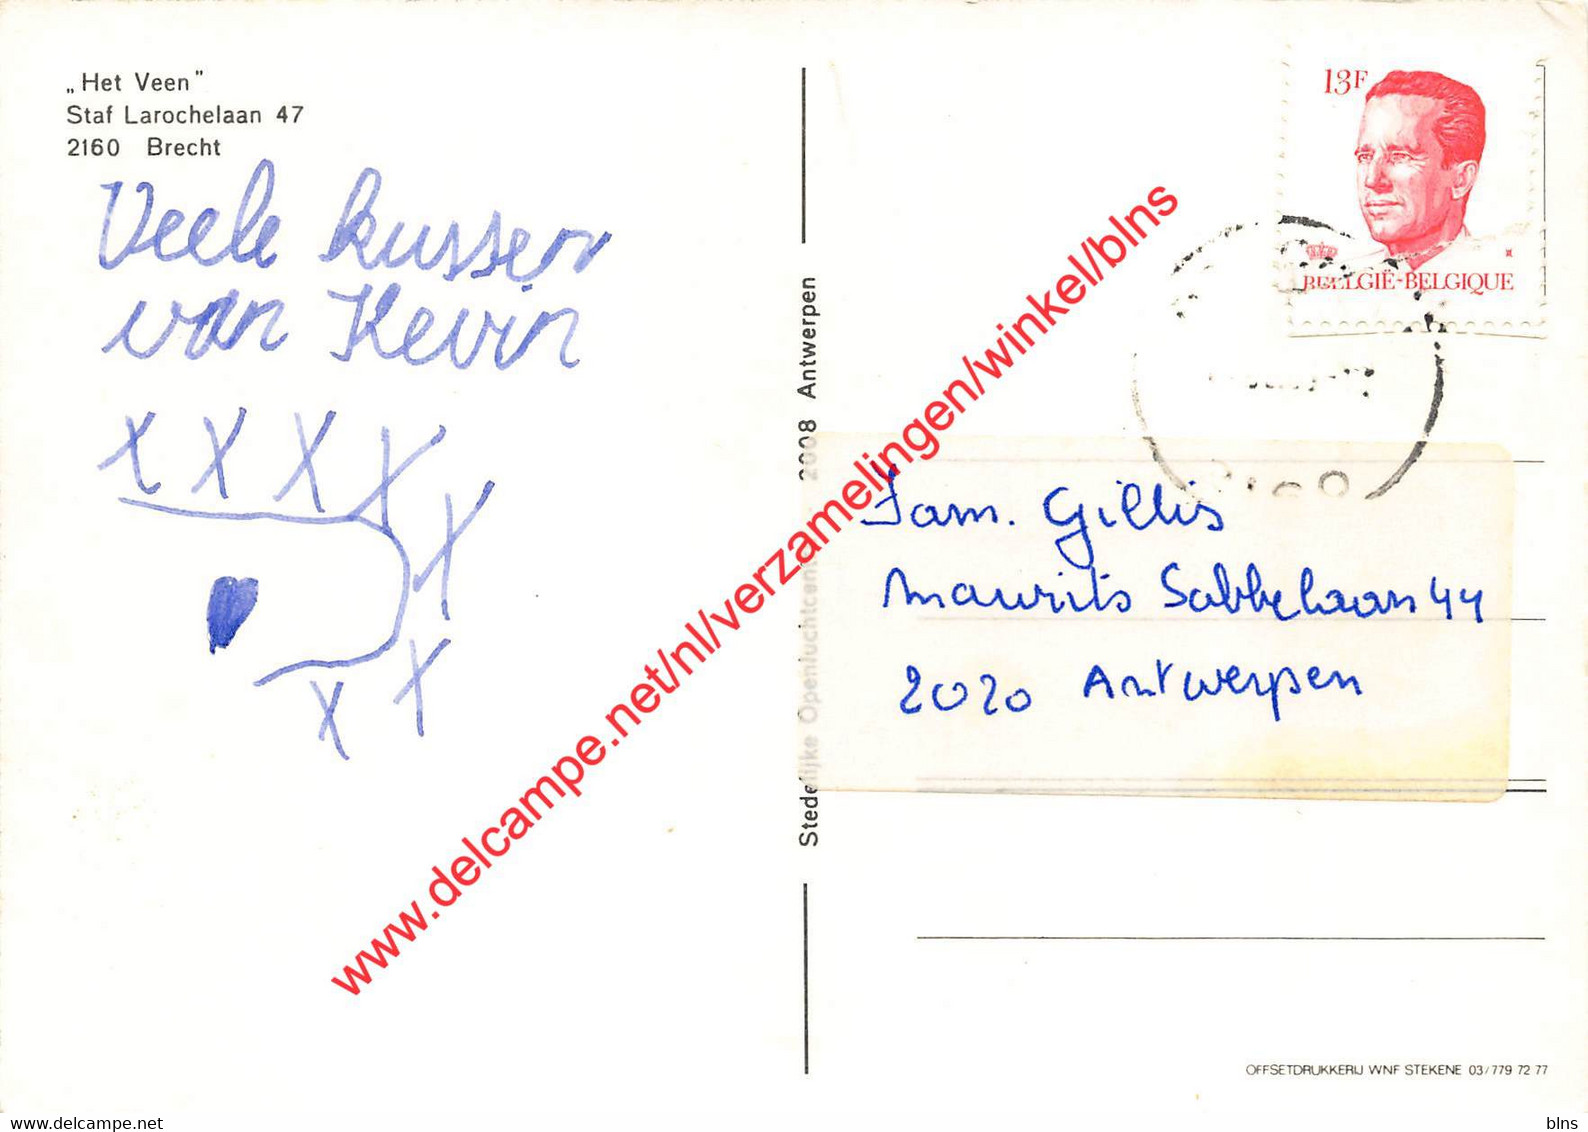 „Het Veen"
Staf Larochelaan 47
2160 Brecht
Veele kussen
van Kevin
x x x x
x
x
x
Stedelijke Openluchtcent 2008 Antwerpen
13F
BELGIË-BELGIQUE
Fam. Gillis
Maurits Sabbelaan 44
2020 Antwerpen
OFFSETDRUKKERIJ WNF STEKENE 03/779 72 77
www.delcampe.net/nl/verzamelingen/winkel/blns
blns